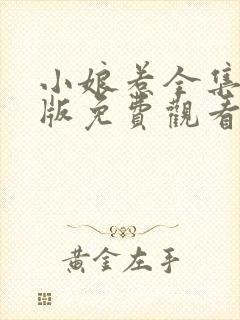 小娘惹全集
版免費觀看
黄金左手